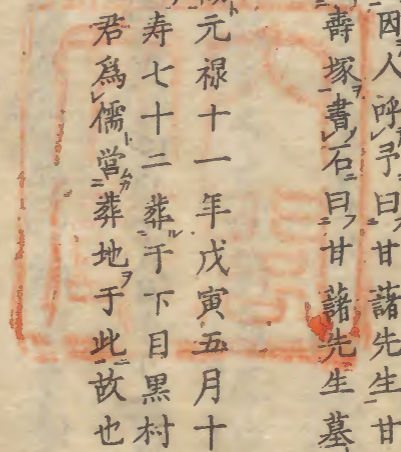 因人呼予曰甘藷先生甘
壽塚書石曰甘藷先生墓
元禄十一年戊寅五月十
寿七十二葬于下目黒村
君爲儒営葬地于此故也